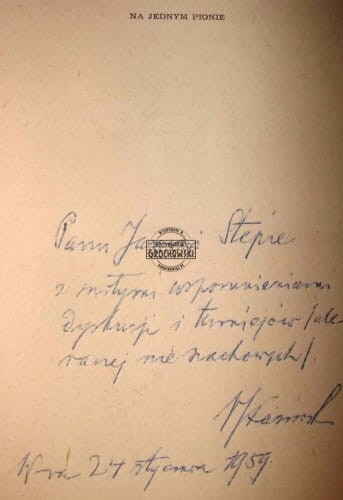 NA JEDNYM PIONIE
Panu Ja Stępie
ANTYKWARIAT
GROCHOWSKI
z miłymi wspomnieniami
dyskusji i turniejów (ale
raczej nie szachowych).
W-wa 24 stycznia 1959.